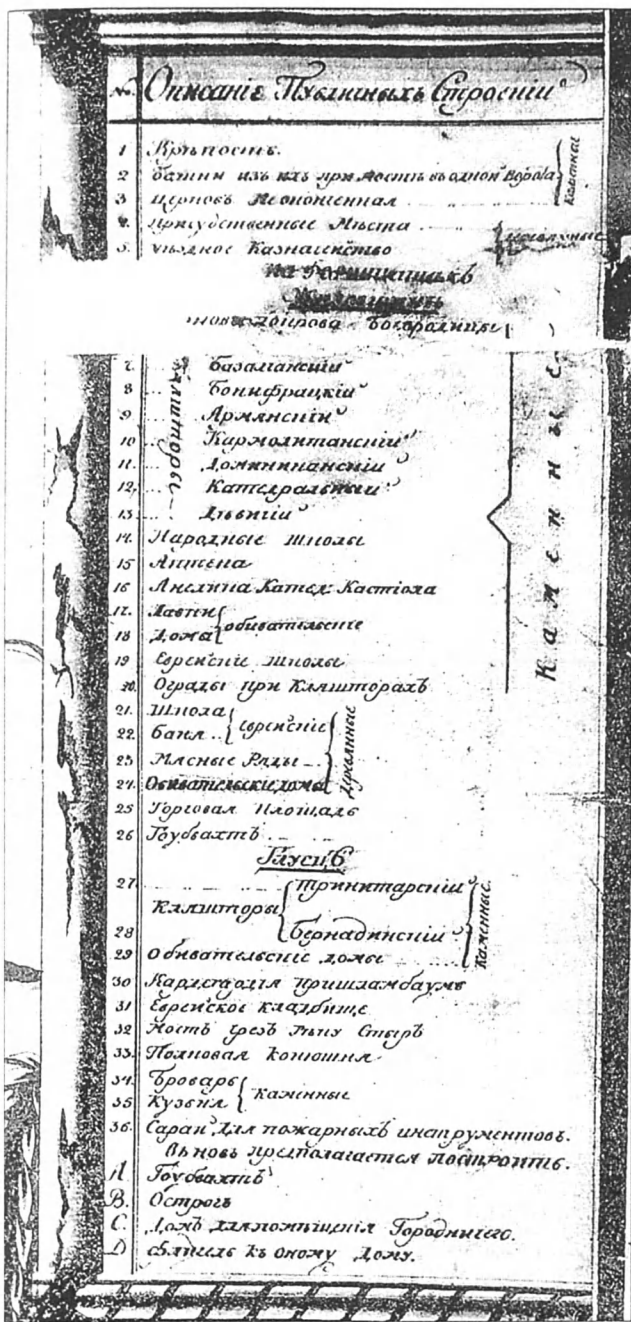 № Описаніе Публичныхъ Строеніи
1 Крѣпость
2 башни изъ ихъ при мостѣ въ одной Ворота
3 церковь Неоконченная
Каменные
4. присудственные Мѣста
5. уѣздное Казначейство
Деревянные
Богородицы
7. Базаліанскіи
8 Бонифрацкіи
9 Армянскіи
10 Кармолитанскіи
11. Доминиканскіи
12. Катедральныи
13. Дѣвичіи
Каменные
14. Народные школы
15 Аптека
16 Каплица Катед: Кастіола
17. Лавки
18. Дома
обивательскіе
19 Еврейскіе школы
20. Ограды при Кляшторахъ
21. Школа
22. Баня
Еврейскіе
23 Мясные Ряды
24. Обивательскіе домы
Деревянные
25 Торговая Площадь
26 Гоубвахтъ
27 Тринитарскіи
Кляшторы
28 Бернадинскіи
29 Обивательскіе домы
Каменные
30 Кардегардія пришламбаумѣ
31 Еврейское кладбище
32 Мость чрезъ рѣку Стыръ
33. Полковая конюшня
34. Броваръ
35 Кузвня
Каменные
36. Сараи для пожарныхъ инструментовъ.
Вновь предполагается построить.
А. Гоубвахтъ
В. Острогъ
С. Домъ для помѣщенія Городничего.
D къ оному Дому.